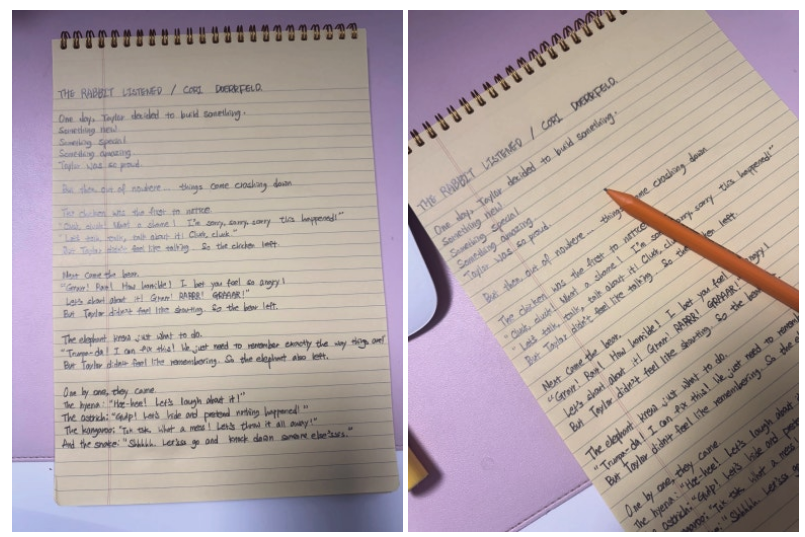 THE RABBIT LISTENED / CORI DOERRFELD.
One day, Taylor decided to build something.
Something new.
Something special.
Something amazing.
Taylor was so proud.
But then out of nowhere... things came crashing down
The chicken was the first to notice.
"Cluck, cluck! What a shame! I'm sorry, sorry, sorry this happened!"
"Let's talk, talk, talk about it! Cluck, cluck"
But Taylor didn't feel like talking. So the chicken left.
Next came the bear.
"Grrrr! Rar! How horrible! I bet you feel so angry!
Let's shout about it! Grrrr! RARRR! GRRAAR!"
But Taylor didn't feel like shouting. So the bear left.
The elephant knew just what to do.
"Trumpa-da! I can fix this! We just need to remember exactly the way things
But Taylor didn't feel like remembering. So the elephant also left.
One by one, they came.
The hyena: "Hee-hee! Let's laugh about it!"
The ostrich: "Gulp! Let's hide and pretend nothing happened!"
The kangaroo: "Tsk tsk, what a mess! Let's throw it all away!"
And the snake: "Shhhh. Let'ssss go and knock down someone else'ssss."
THE RABBIT LISTENED / CORI DOERRFELD.
One day, Taylor decided to build something.
Something new.
Something special.
Something amazing.
Taylor was so proud.
But then out of nowhere... things came crashing down
The chicken was the first to notice
"Cluck, cluck! What a shame! I'm sorry, sorry this happened!"
"Let's talk, talk, talk about it! Cluck, cluck
But Taylor didn't feel like talking. So the left.
Next came the bear.
"Grrrr! Rar! How horrible! I bet you feel angry!
Let's shout about it! Grrrr! RARRR! GRRAAR!"
But Taylor didn't feel like shouting. So the bear
The elephant knew just what to do.
"Trumpa-da! I can fix this! We just need to
But Taylor didn't feel like remembering. So the
One by one, they came.
The hyena: "Hee-hee! Let's laugh about
ostrich: "Gulp! Let's hide and
kangaroo: "Tsk tsk, what a
snake: "Shhhh.